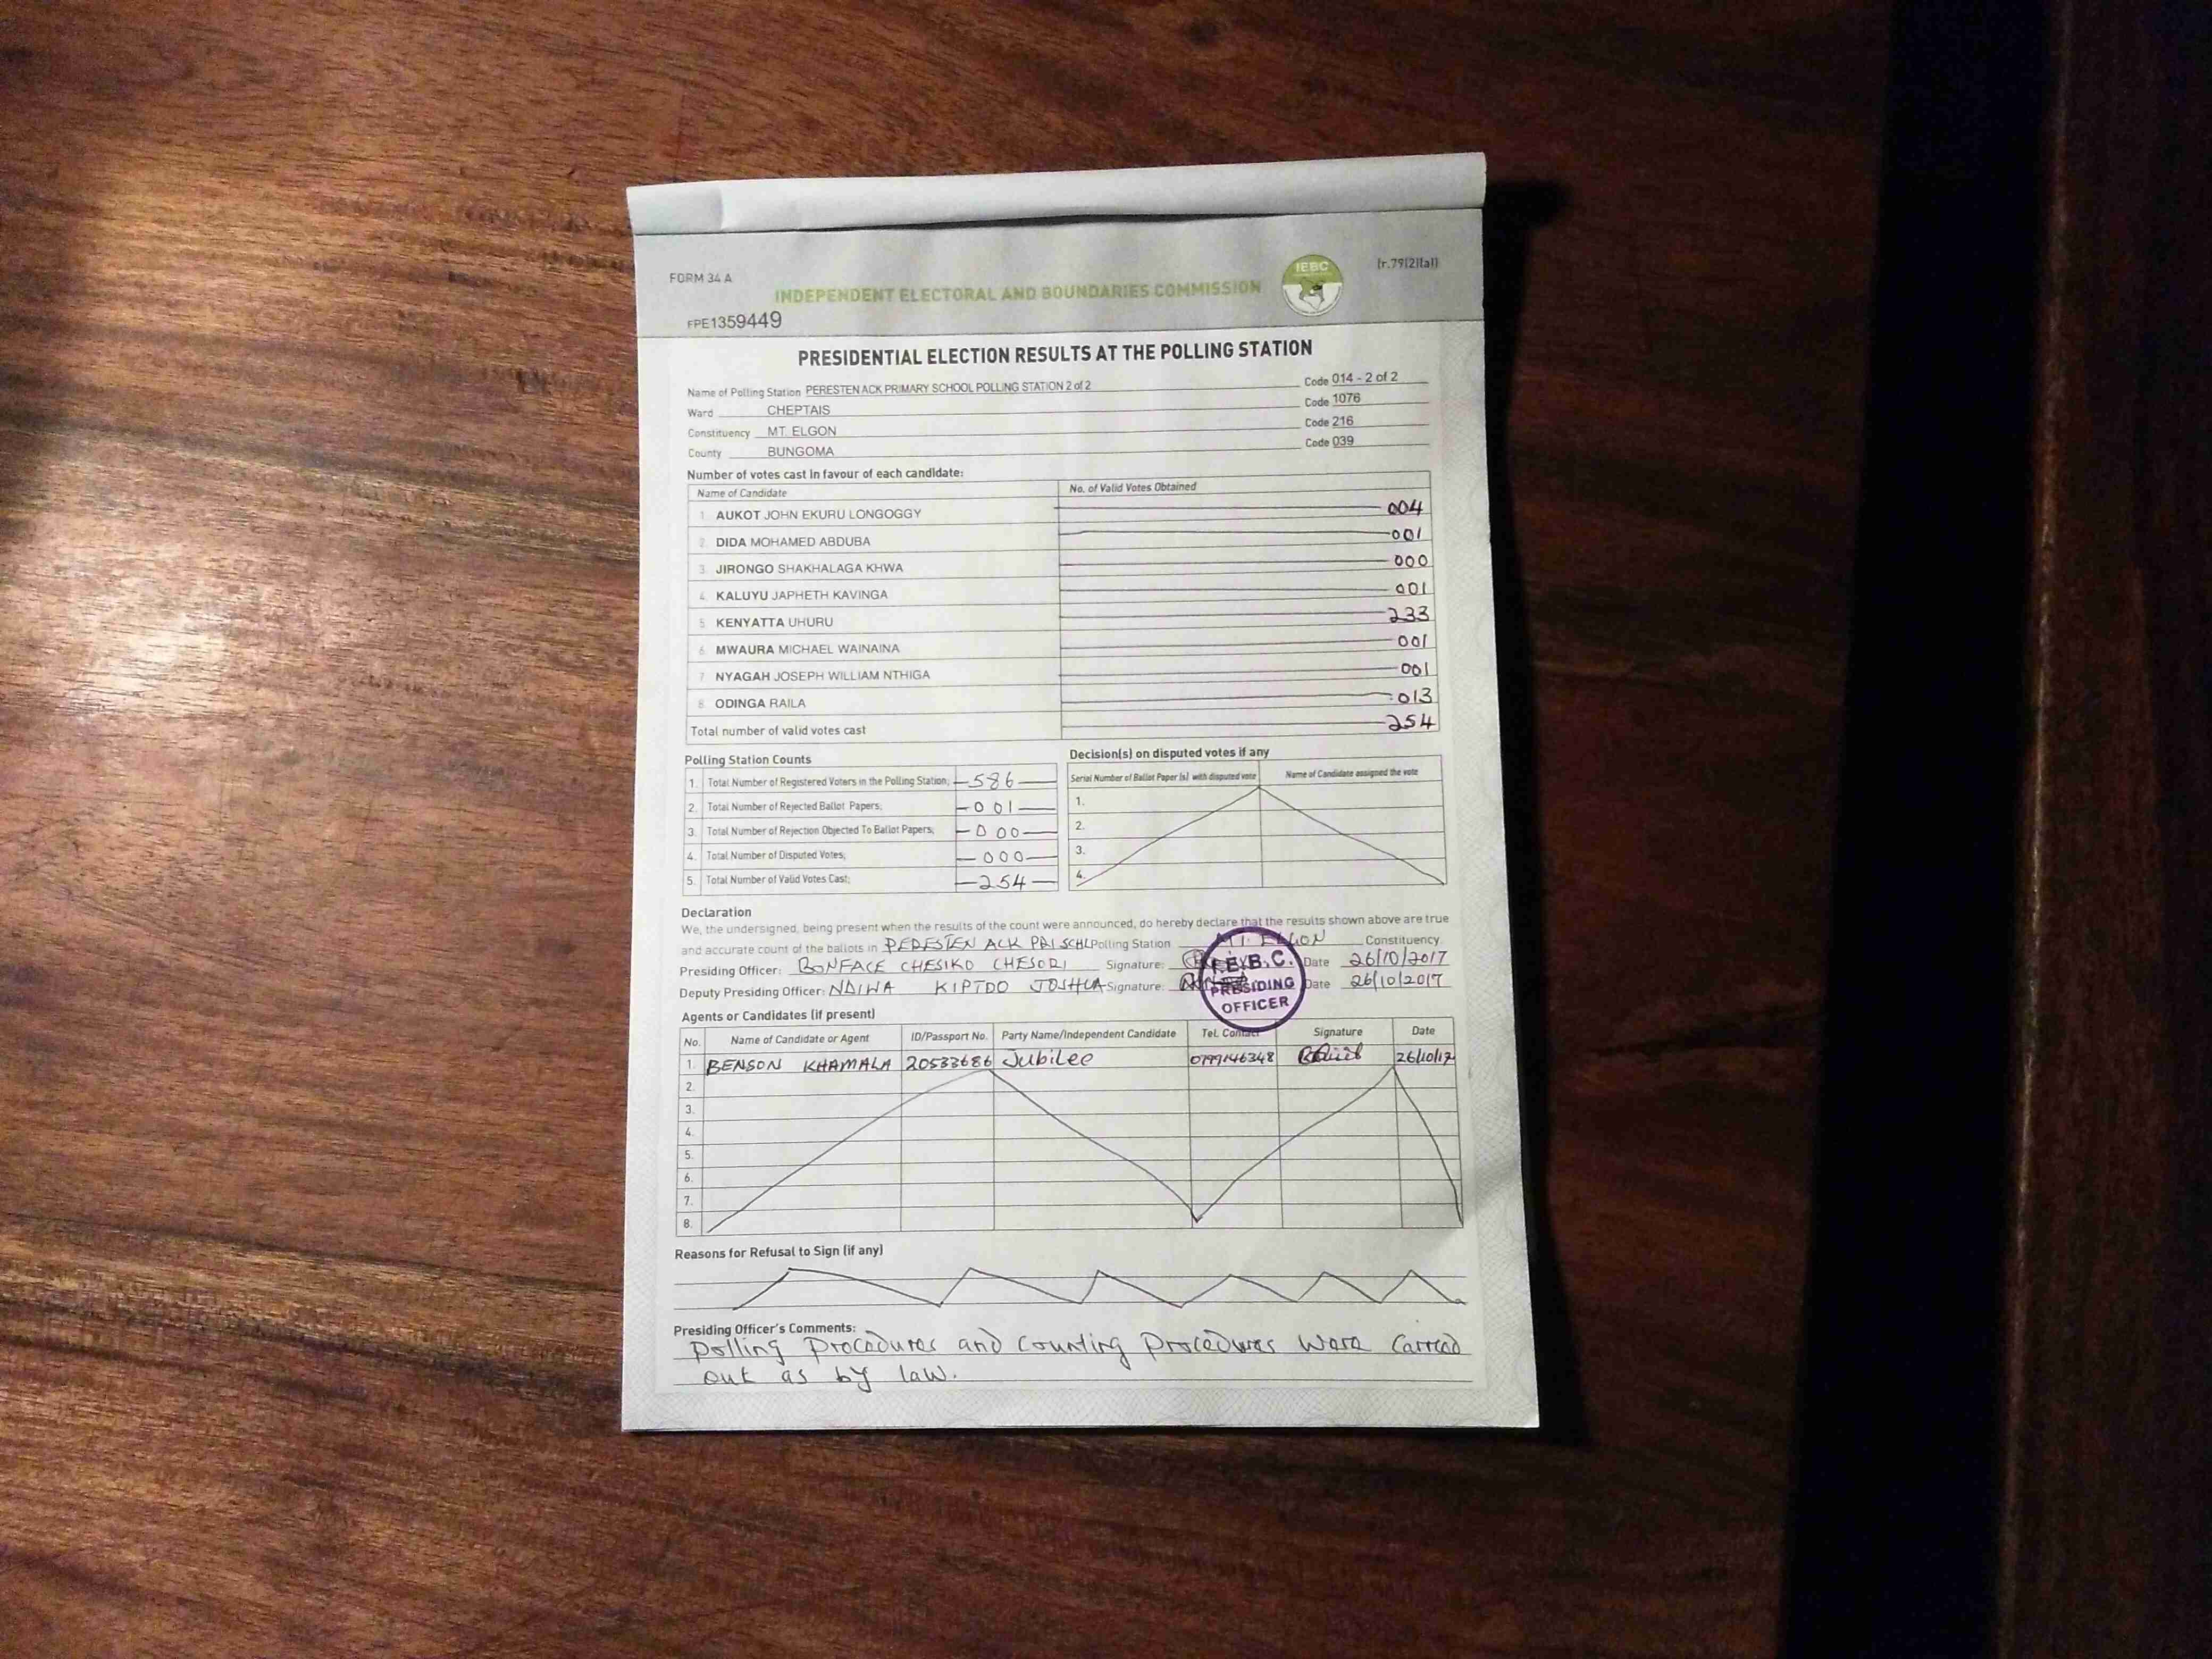 FORM 34 A
INDEPENDENT ELECTORAL AND BOUNDARIES COMMISSION
IEBC
(r.79(2)(a))
FPE1359449
PRESIDENTIAL ELECTION RESULTS AT THE POLLING STATION
Name of Polling Station PERESTEN ACK PRIMARY SCHOOL POLLING STATION 2 of 2 Code 014 - 2 of 2
Ward CHEPTAIS Code 1076
Constituency MT. ELGON Code 216
County BUNGOMA Code 039
Number of votes cast in favour of each candidate:
Name of Candidate No. of Valid Votes Obtained
1. AUKOT JOHN EKURU LONGOGGY 004
2. DIDA MOHAMED ABDUBA 001
3. JIRONGO SHAKHALAGA KHWA 000
4. KALUYU JAPHETH KAVINGA 001
5. KENYATTA UHURU 233
6. MWAURA MICHAEL WAINAINA 001
7. NYAGAH JOSEPH WILLIAM NTHIGA 001
8. ODINGA RAILA 013
Total number of valid votes cast 254
Polling Station Counts
1. Total Number of Registered Voters in the Polling Station; 586
2. Total Number of Rejected Ballot Papers; 001
3. Total Number of Rejection Objected To Ballot Papers; 000
4. Total Number of Disputed Votes; 000
5. Total Number of Valid Votes Cast; 254
Decision(s) on disputed votes if any
Serial Number of Ballot Paper (s) with disputed vote Name of Candidate assigned the vote
1.
2.
3.
4.
Declaration
We, the undersigned, being present when the results of the count were announced, do hereby declare that the results shown above are true
and accurate count of the ballots in PERESTEN ACK PRI SCHL Polling Station MT. ELGON Constituency
Presiding Officer: BONFACE CHESIKO CHESORI Signature: Date 26/10/2017
Deputy Presiding Officer: NDIWA KIPTOO JOSHUA Signature: Date 26/10/2017
I.E.B.C.
PRESIDING
OFFICER
Agents or Candidates (if present)
No. Name of Candidate or Agent ID/Passport No. Party Name/Independent Candidate Tel. Contact Signature Date
1. BENSON KHAMALA 20533686 Jubilee 0799146348 26/10/17
2.
3.
4.
5.
6.
7.
8.
Reasons for Refusal to Sign (if any)
Presiding Officer's Comments:
Polling Procedures and Counting Procedures were Carried
out as by law.